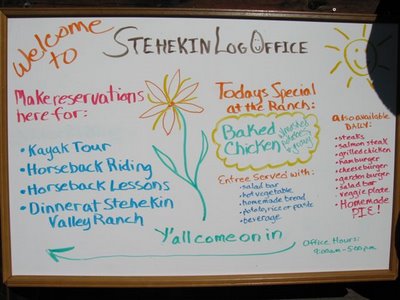 Welcome
to
STEHEKIN LOG OFFICE
Make reservations
here for:
• Kayak Tour
• Horseback Riding
• Horseback Lessons
• Dinner at Stehekin
Valley Ranch
Todays Special
at the Ranch:
Baked
Chicken
w/mashed
potatoes
& gravy
Entree Served with:
• salad bar
• hot vegetable
• homemade bread
• potato, rice or pasta
• beverage
also available
DAILY:
• steaks
• salmon steak
• grilled chicken
• hamburger
• cheese burger
• garden burger
• salad bar
• veggie plate
• Homemade
PIE!
Y'all come on in
Office Hours:
9:00am - 5:00pm